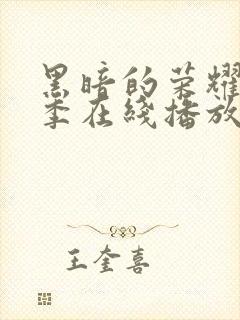 黑暗的荣耀
季在线播放
王奎喜